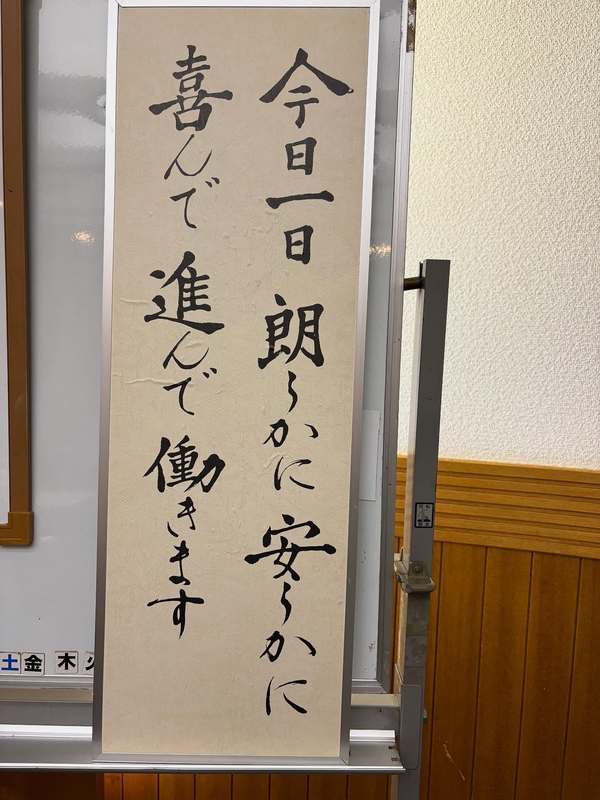 今日一日 朗らかに 安らかに
喜んで 進んで 働きます
土 金 木